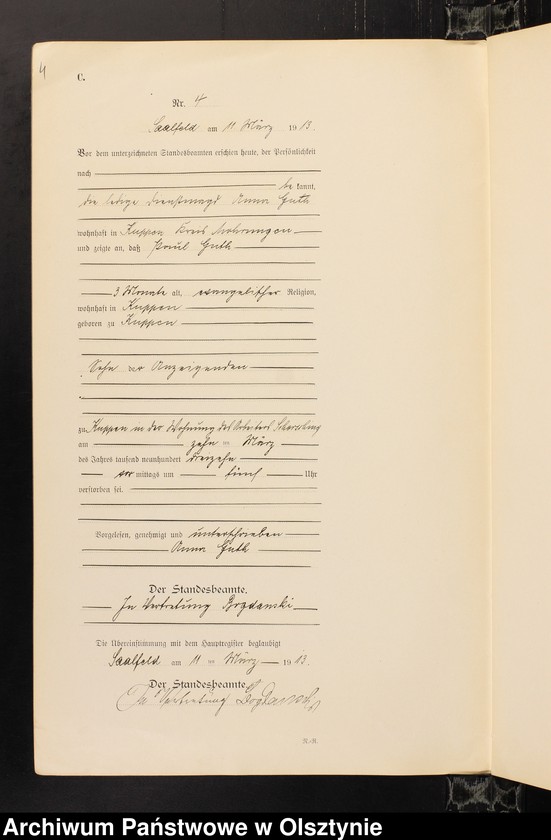 4
C.
Nr. 4
Saalfeld am 11 März 1913.
Vor dem unterzeichneten Standesbeamten erschien heute, der Persönlichkeit
nach
be kannt,
die ledige Dienstmagd Anna Guth
wohnhaft in Kuppen Kreis Mohrungen
und zeigte an, daß Paul Guth
3 Monate alt, evangelischer Religion,
wohnhaft in Kuppen
geboren zu Kuppen
Sohn der Anzeigenden
zu Kuppen in der Wohnung des Arbeiters
am zehn ten März
des Jahres tausend neunhundert dreizehn
vor mittags um fünf Uhr
verstorben sei.
Vorgelesen, genehmigt und unterschrieben
Anna Guth
Der Standesbeamte.
In Vertretung Bogdanski
Die Übereinstimmung mit dem Hauptregister beglaubigt
Saalfeld am 11 ten März 1913.
Der Standesbeamte.
In Vertretung Bogdanski
Archiwum Państwowe w Olsztynie